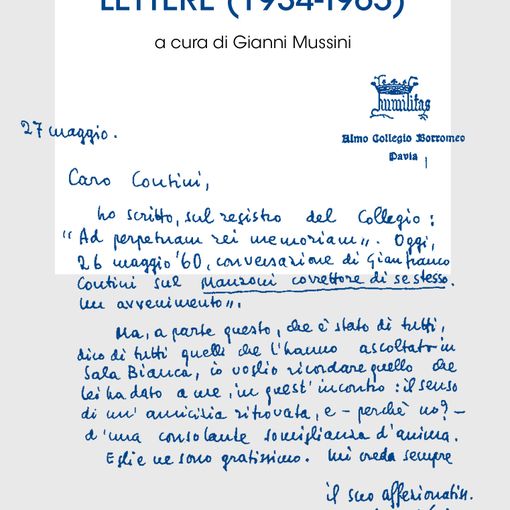 LETTERE (1934-1965)
a cura di Gianni Mussini
Humilitas
Almo Collegio Borromeo
Pavia
27 maggio.
Caro Contini,
ho scritto, sul registro del Collegio:
"Ad perpetuam rei memoriam". Oggi,
26 maggio '60, conversazione di Gianfranco
Contini sul Manzoni correttore di se stesso.
Un avvenimento".
Ma, a parte questo, che è stato di tutti,
dico di tutti quelli che l'hanno ascoltato in
Sala Bianca, io voglio ricordare quello che
lei ha dato a me, in quest'incontro: il senso
di un'amicizia ritrovata, e – perchè no? –
d'una consolante somiglianza d'anima.
E glie ne sono gratissimo. Mi creda sempre
il suo affezionatiss.